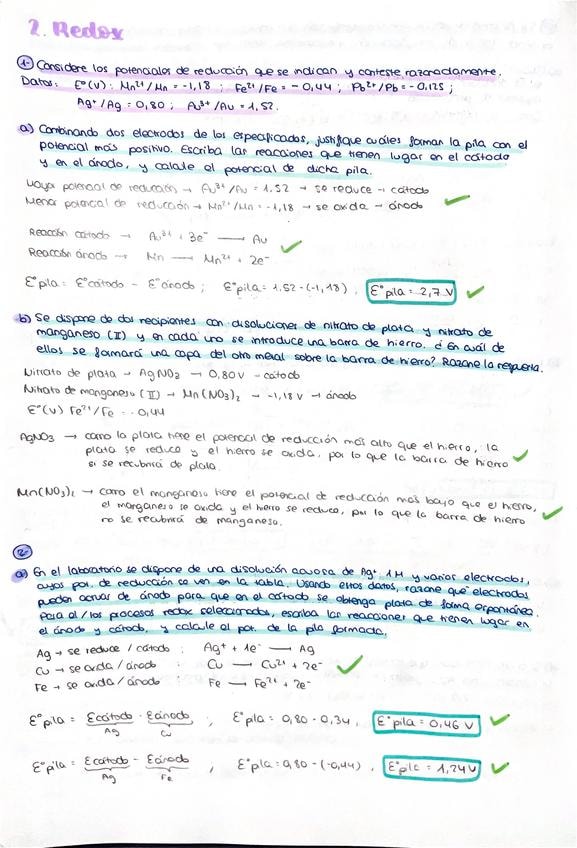 2. Redox
1- Considere los potenciales de reducción que se indican y conteste razonadamente.
Datos: E°(V): Mn²⁺/Mn = -1,18 ; Fe²⁺/Fe = -0,44 ; Pb²⁺/Pb = -0,125 ;
Ag⁺/Ag = 0,80 ; Au³⁺/Au = 1,52.
a) Combinando dos electrodos de los especificados, justifique cuáles forman la pila con el
potencial más positivo. Escriba las reacciones que tienen lugar en el cátodo
y en el ánodo, y calcule el potencial de dicha pila.
Mayor potencial de reducción → Au³⁺/Au = 1,52 → se reduce - cátodo
Menor potencial de reducción → Mn²⁺/Mn = -1,18 → se oxida → ánodo
Reacción cátodo → Au³⁺ + 3e⁻ → Au
Reacción ánodo → Mn → Mn²⁺ + 2e⁻
E°pila = E°cátodo - E°ánodo ; E°pila = 1,52 - (-1,18) , E°pila = 2,7 V
b) Se dispone de dos recipientes con disoluciones de nitrato de plata y nitrato de
manganeso (II) y en cada uno se introduce una barra de hierro. ¿En cuál de
ellos se formará una capa del otro metal sobre la barra de hierro? Razone la respuesta.
Nitrato de plata → AgNO₂ → 0,80V - cátodo
Nitrato de manganeso (II) → Mn(NO₃)₂ → -1,18V → ánodo
E°(V) Fe²⁺/Fe = -0,44
AgNO₃ → como la plata tiene el potencial de reducción más alto que el hierro, la
plata se reduce y el hierro se oxida, por lo que la barra de hierro
si se recubrirá de plata.
Mn(NO₃)₂ → como el manganeso tiene el potencial de reducción más bajo que el hierro,
el manganeso se oxida y el hierro se reduce, por lo que la barra de hierro
no se recubrirá de manganeso.
2-
a) En el laboratorio se dispone de una disolución acuosa de Ag⁺ 1M y varios electrodos,
cuyos pot. de reducción se ven en la tabla. Usando estos datos, razone qué electrodos
pueden actuar de ánodo para que en el cátodo se obtenga plata de forma espontánea.
Para el/los procesos redox seleccionados, escriba las reacciones que tienen lugar en
el ánodo y cátodo, y calcule el pot. de la pila formada.
Ag → se reduce / cátodo : Ag⁺ + 1e⁻ → Ag
Cu → se oxida / ánodo : Cu → Cu²⁺ + 2e⁻
Fe → se oxida / ánodo : Fe → Fe²⁺ + 2e⁻
E°pila = Ecátodo - Eánodo ; E°pila = 0,80 - 0,34 , E°pila = 0,46 V
Ag Cu
E°pila = Ecátodo - Eánodo , E°pila = 0,80 - (-0,44) , E°pila = 1,24 V
Ag Fe